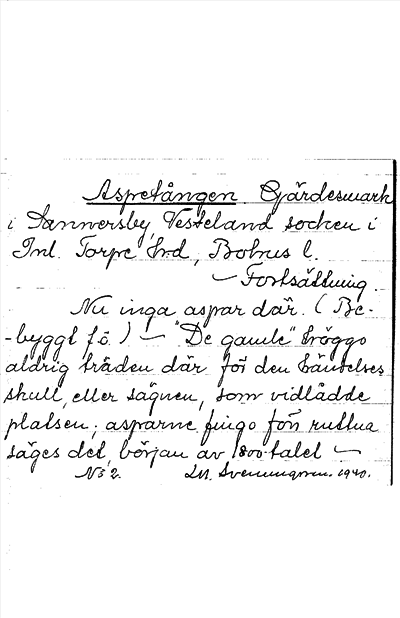 Aspetången Gjärdesmark
i Dannersby, Vesteland socken i
Inl. Torpe hrd, Bohus l.
— Fortsättning.
Nu inga aspar där. (Be-
-byggt f.ö.) — "De gamle" höggo
aldrig träden där för den händelses
skull, eller sägnen, som vidlådde
platsen; asparne fingo förruttna
säges det, början av 1800-talet —
No 2. LM. Svenungsson. 1940.